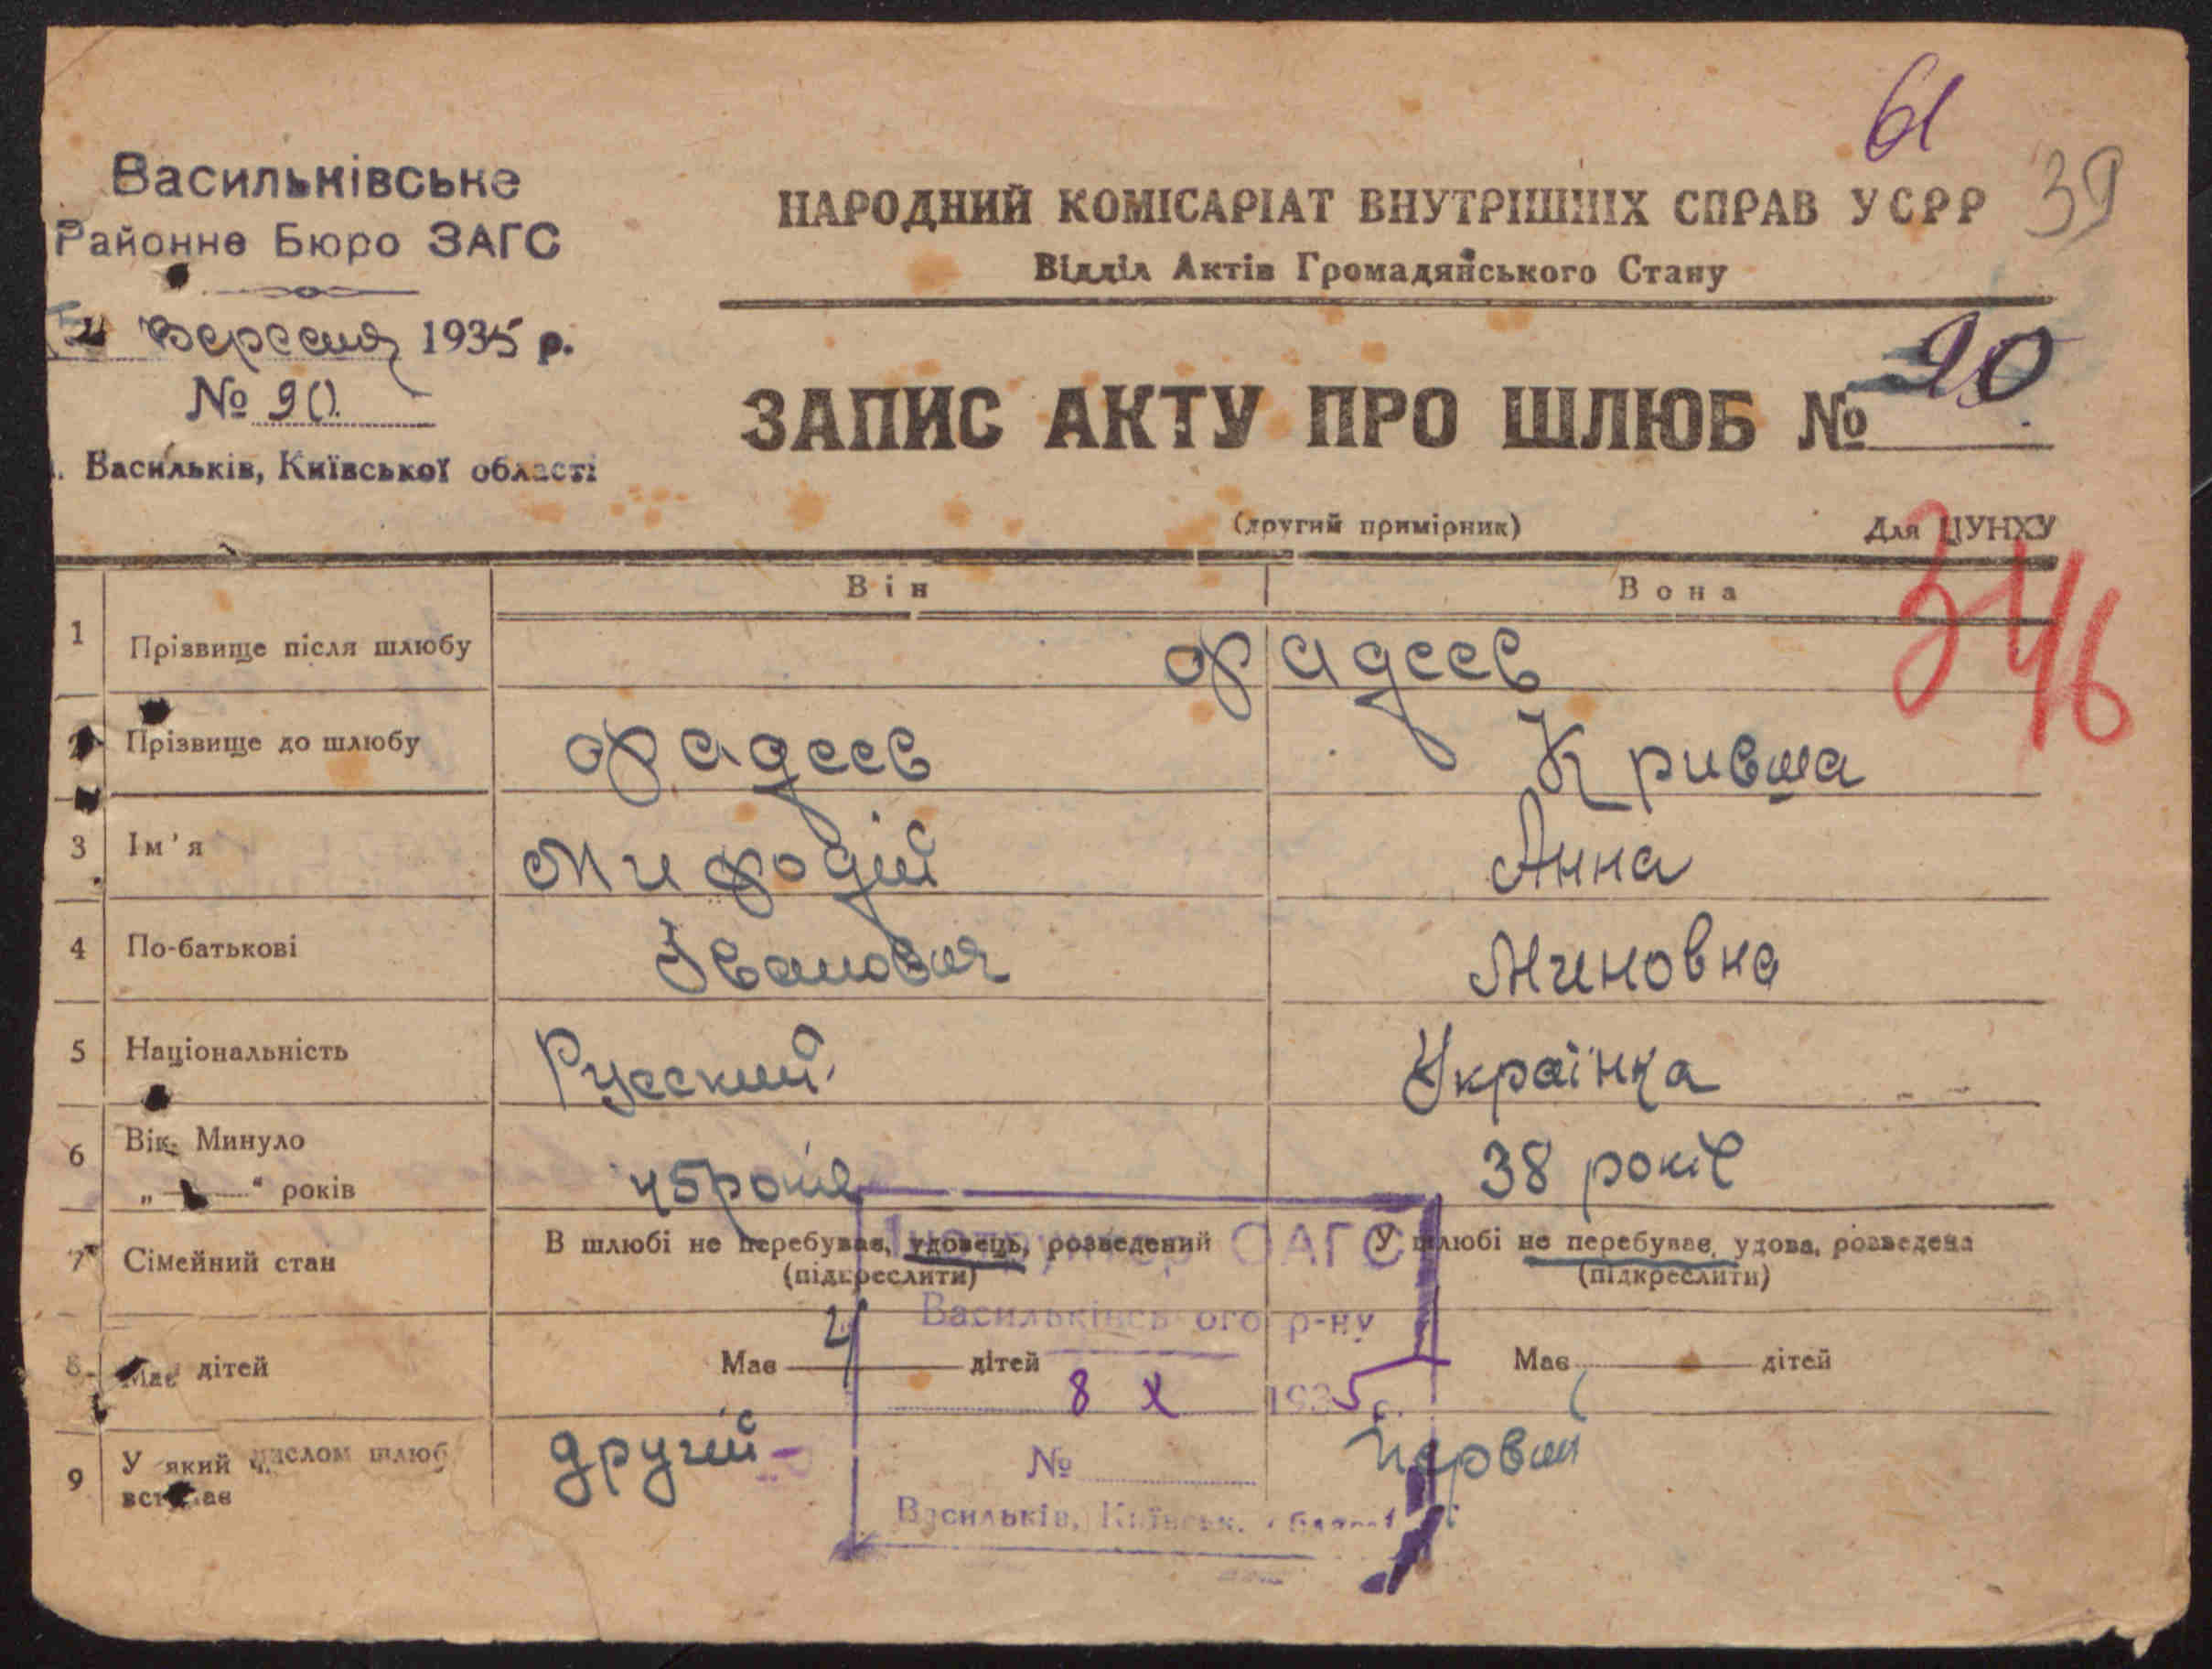 61
39
Васильківське
Районне Бюро ЗАГС
Вересня 1935 р.
№ 90.
Васильків, Київської області
НАРОДНИЙ КОМІСАРІАТ ВНУТРІШНІХ СПРАВ УСРР
Відділ Актів Громадянського Стану
ЗАПИС АКТУ ПРО ШЛЮБ № 90
(другий примірник) Для ЦУНХУ
346
Він Вона
1 Прізвище після шлюбу Фадеев
2 Прізвище до шлюбу Фадеев Кривша
3 Ім'я Мифодій Анна
4 По-батькові Іванович Миновна
5 Національність Русский Українка
6 Вік. Минуло „ — “ років 45 років 38 років
7 Сімейний стан В шлюбі не перебуває, удовець, розведений (підкреслити) У шлюбі не перебуває, удова, розведена (підкреслити)
8 Має дітей Має 4 дітей Має дітей
9 У який числом шлюб вступає другий Первий
Інструктор ЗАГС
Васильківського р-ну
8 X 1935 р.
№
Васильків, Київськ. області